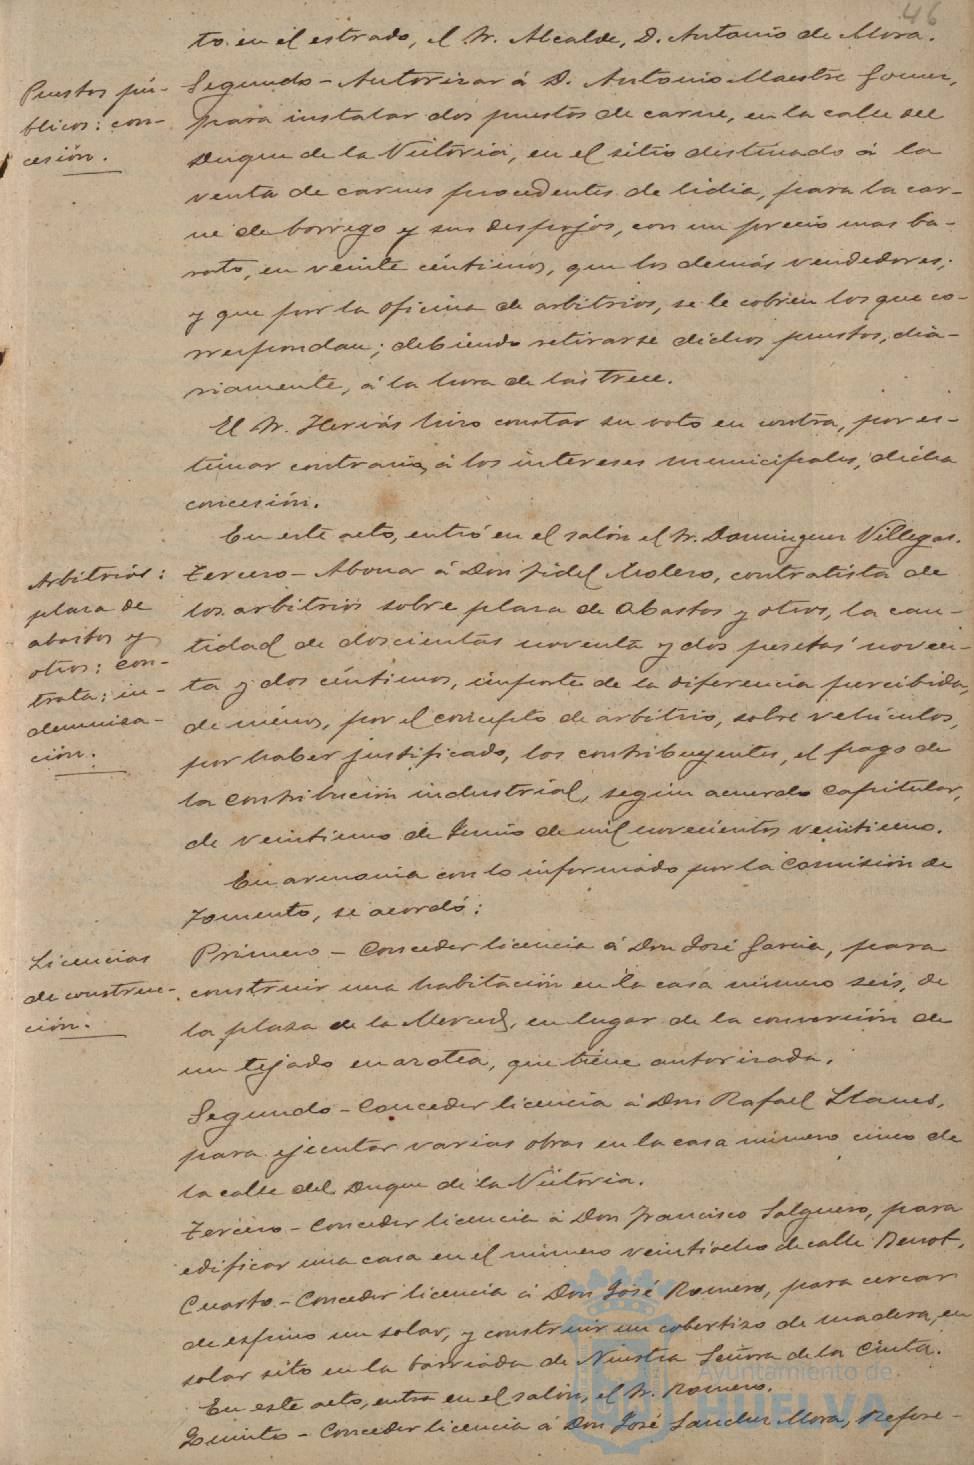 46
to en el estrado, el Sr. Alcalde, D. Antonio de Mora.
Puestos pú-
blicos: con-
cesión.
Segundo - Autorizar á D. Antonio Maestre Gomez,
para instalar dos puestos de carne, en la calle del
Duque de la Victoria, en el sitio destinado á la
venta de carnes procedentes de lidia, para la car-
ne de borrego y sus despojos, con un precio mas ba-
rato, en veinte céntimos, que los demás vendedores;
y que por la oficina de arbitrios, se le cobren los que co-
rrespondan; debiendo retirarse dichos puestos, dia-
riamente, á la hora de las trece.
El Sr. Hervás hizo constar su voto en contra, por es-
timar contraria, á los intereses municipales, dicha
concesión.
En este acto, entró en el salón el Sr. Dominguez Villegas.
Arbitrios:
plaza de
abastos y
otros: con-
trata: in-
demniza-
ción.
Tercero - Abonar á Don Fidel Molero, contratista de
los arbitrios sobre plaza de Abastos y otros, la can-
tidad de doscientas noventa y dos pesetas noven-
ta y dos céntimos, importe de la diferencia percibida,
de menos, por el concepto de arbitrio, sobre vehículos,
por haber justificado, los contribuyentes, el pago de
la contribución industrial, según acuerdo capitular,
de veintiuno de Junio de mil novecientos veintiuno.
En armonia con lo informado por la Comisión de
Fomento, se acordó:
Licencias
de construc-
ción.
Primero - Conceder licencia á Don José Garcia, para
construir una habitación en la casa número seis, de
la plaza de la Merced, en lugar de la conversión de
un tejado en azotea, que tiene autorizada.
Segundo - Conceder licencia á Don Rafael Llanes,
para ejecutar varias obras en la casa número cinco de
la calle del Duque de la Victoria.
Tercero - Conceder licencia á Don Francisco Salguero, para
edificar una casa en el número veintiocho de calle Benot.
Cuarto - Conceder licencia á Don José Romero, para cercar
de espino un solar, y construir un cobertizo de madera, en
solar sito en la barriada de Nuestra Señora de la Cinta.
En este acto, entra en el salón, el Sr. Romero.
Quinto - Conceder licencia á Don José Sanchez Mora, Refore-
Ayuntamiento de
HUELVA